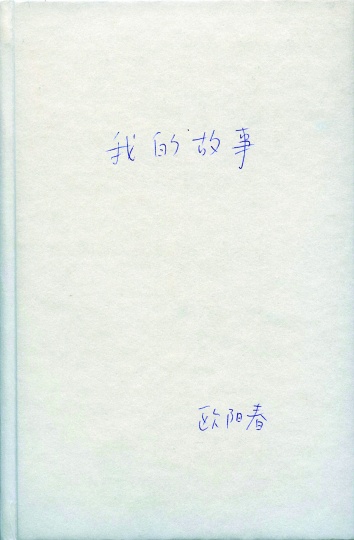 我的故事
欧阳春